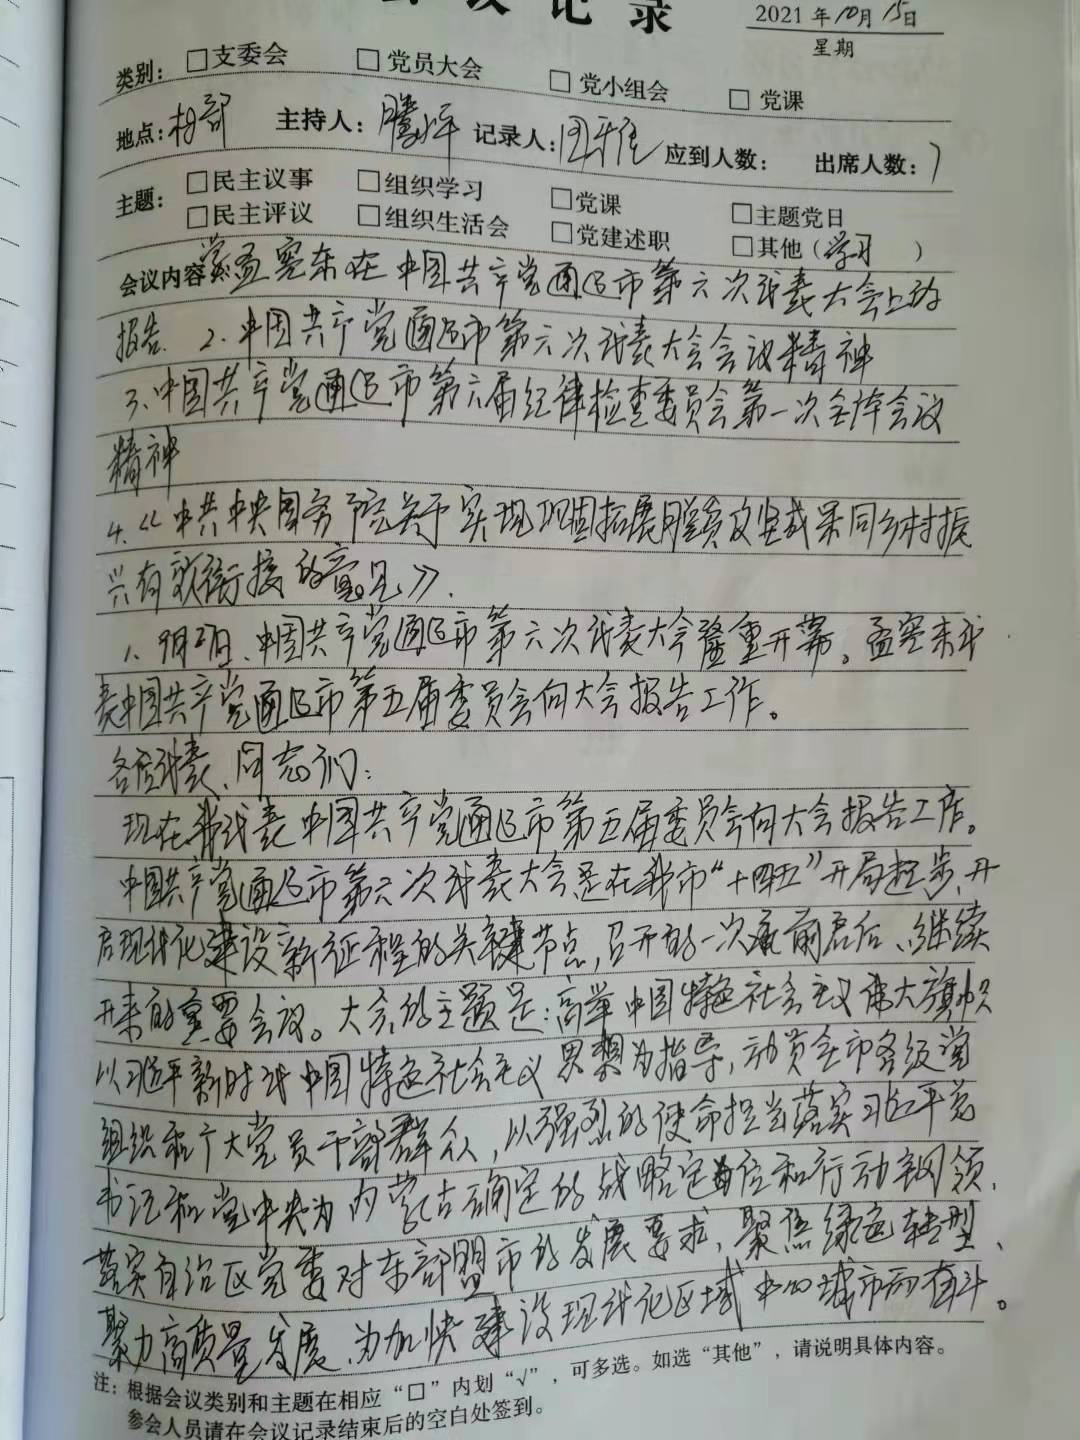 会议记录
2021年10月15日
星期
类别：□支委会 □党员大会 □党小组会 □党课
地点：村部 主持人： 记录人： 应到人数： 出席人数：7
主题：□民主议事 □组织学习 □党课 □主题党日
□民主评议 □组织生活会 □党建述职 □其他（学习 ）
会议内容 孟宪东在中国共产党通辽市第六次代表大会上的
报告、2.中国共产党通辽市第六次代表大会会议精神
3、中国共产党通辽市第六届纪律检查委员会第一次全体会议
精神
4.《中共中央国务院关于实现巩固拓展脱贫攻坚成果同乡村振
兴有效衔接的意见》.
1、9月 日、中国共产党通辽市第六次代表大会隆重开幕。孟宪东代
表中国共产党通辽市第五届委员会向大会报告工作。
各位代表、同志们：
现在我代表中国共产党通辽市第五届委员会向大会报告工作。
中国共产党通辽市第六次代表大会是在我市“十四五”开局起步、开
启现代化建设新征程的关键节点，召开的一次承前启后、继续
开来的重要会议。大会的主题是：高举中国特色社会主义伟大旗帜
以习近平新时代中国特色社会主义思想为指导，动员全市各级党
组织和广大党员干部群众，以强烈的使命担当落实习近平总
书记和党中央为内蒙古确定的战略定位和行动纲领、
落实自治区党委对东部盟市的发展要求，聚焦绿色转型、
聚力高质量发展、为加快建设现代化区域中心城市而奋斗。
注：根据会议类别和主题在相应“□”内划“√”，可多选。如选“其他”，请说明具体内容。
参会人员请在会议记录结束后的空白处签到。